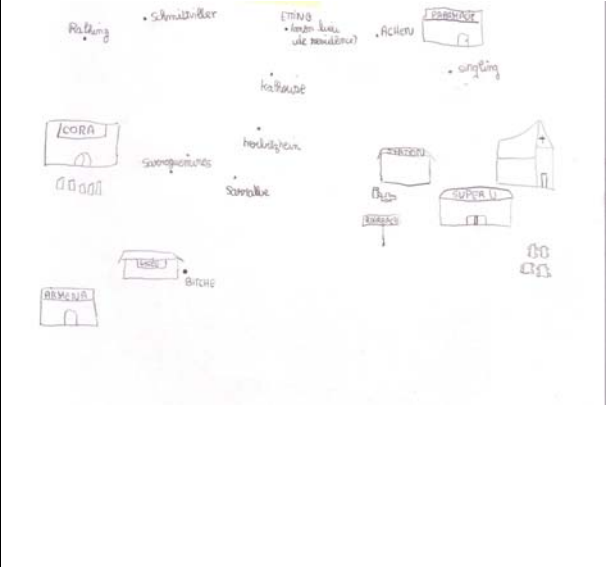 Schmittviller
Rahling
ETTING
(mon lieu
de résidence)
ACHEN
PHARMACIE
singling
Kalhouse
CORA
herbitzheim
Sarreguemines
Sarralbe
SUPER U
ROHRBACH
BITCHE
ARMENA